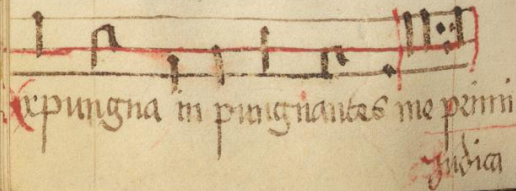 expungna in pungnantes me primi
Iudica